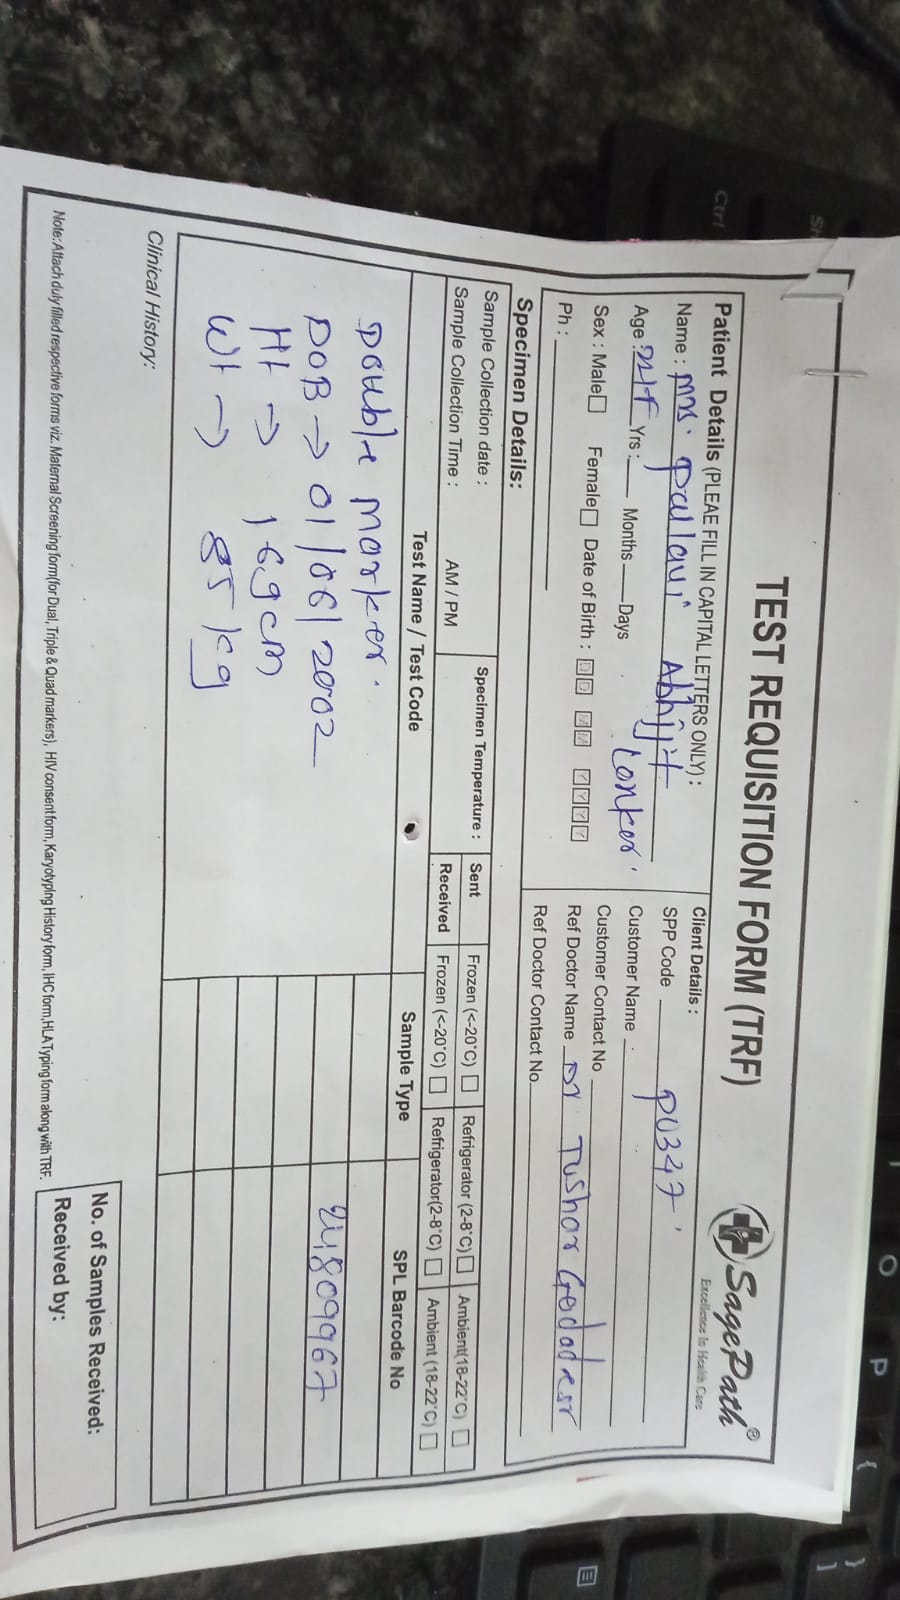 TEST REQUISITION FORM (TRF)
SagePath®
Excellence In Health Care
Patient Details (PLEAE FILL IN CAPITAL LETTERS ONLY) :
Name : Mrs. Pallavi Abhijit Lonker.
Age : 24F Yrs : Months Days
Sex : Male Female Date of Birth : D D M M Y Y Y Y
Ph :
Client Details :
SPP Code P0347
Customer Name :
Customer Contact No
Ref Doctor Name Dr Tushar
Ref Doctor Contact No.
Specimen Details:
Sample Collection date :
Sample Collection Time : AM / PM
Specimen Temperature :
Sent Frozen (<-20°C) Refrigerator (2-8°C) Ambient(18-22°C)
Received Frozen (<-20°C) Refrigerator(2-8°C) Ambient (18-22°C)
Test Name / Test Code Sample Type SPL Barcode No
Double marker.
DOB → 01/06/2002 24809967
Ht → 169cm
Wt → 85 kg
Clinical History:
No. of Samples Received:
Received by:
Note:Attach duly filled respective forms viz. Maternal Screening form(for Dual, Triple & Quad markers), HIV consent form, Karyotyping History form, IHC form,HLA Typing form along with TRF.
Ctrl
Sh
O
P
{
}
]